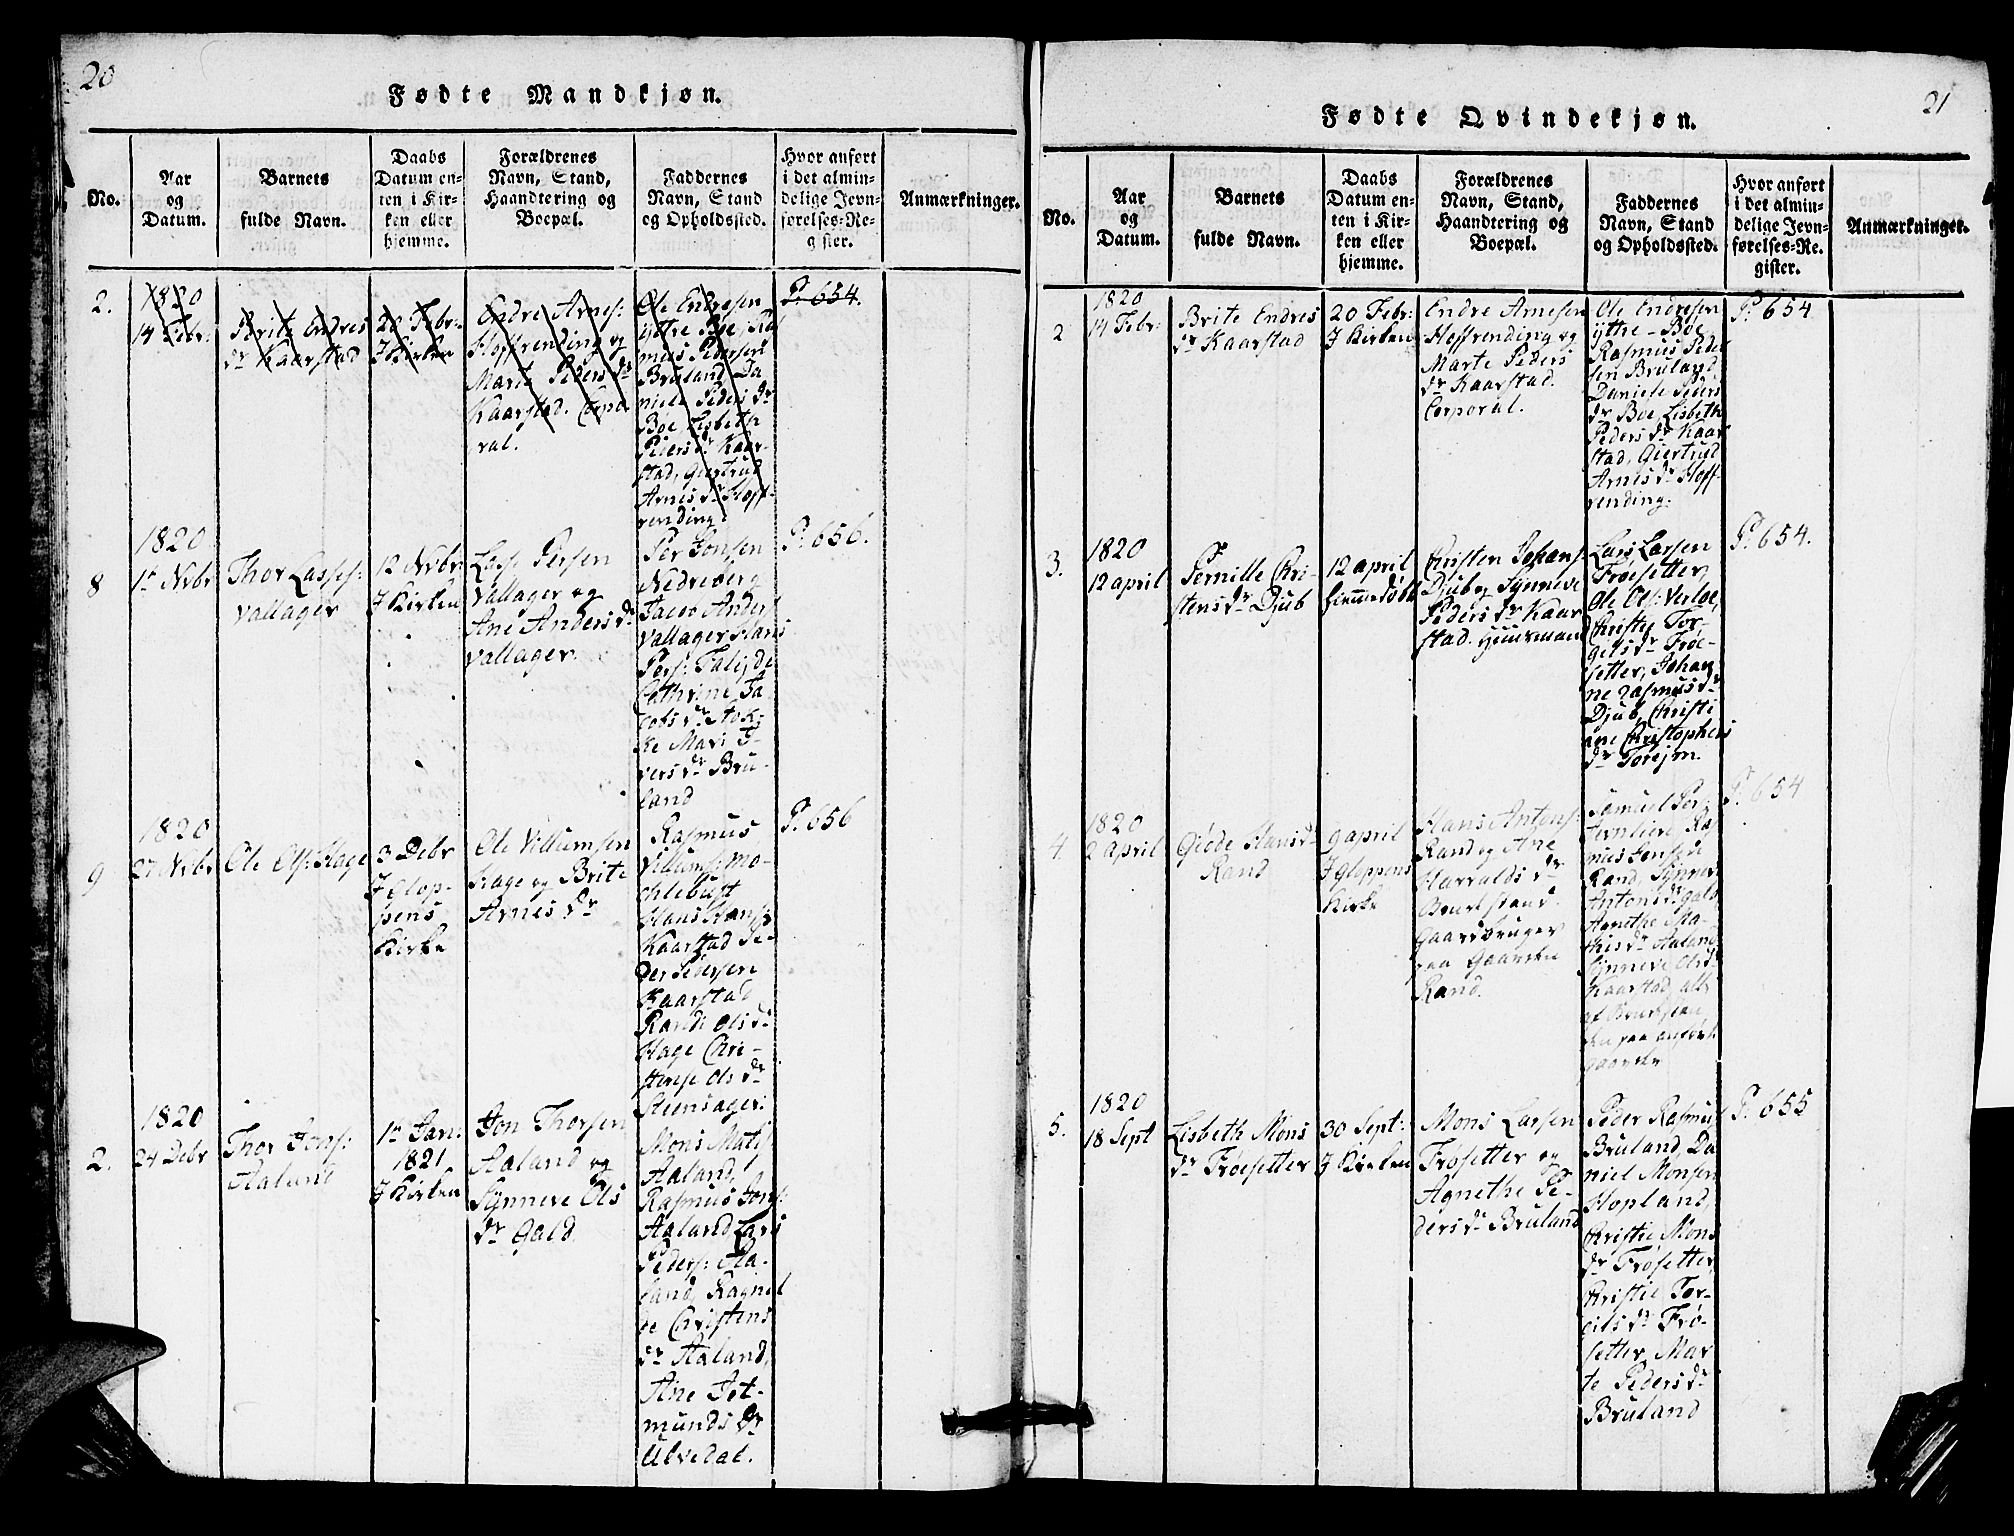 20
Fødte Mandkjøn.
No.
Aar
og
Datum.
Barnets
fulde Navn.
Daabs
Datum en-
ten i Kir-
ken eller
hjemme.
Forældrenes
Navn, Stand,
Haandtering og
Boepæl.
Faddernes
Navn, Stand
og Opholdssted.
Hvor anført
i det almin-
delige Jevn-
førelses-Re-
gister.
Anmærkninger.
2.
1820
14 Febr:
Brite Endres
dr Kaarstad
20 Febr:
J Kirken
Endre Arnes:
Hoffrending og
Marte Peders dr
Kaarstad. Corpo
ral.
Ole Endresen
ÿttre Boe, Ras
mus Pedersen
Bruland Da
niele Peders dr
Boe Lisbeth
Peders dr Kaar
stad, Giertrud
Arnes dr Hoff-
rending.
P. 654.
8
1820
1te Nvbr
Thor Lasses:
Vallager
12 Nvbr
J Kirken
Lasse Persen
Vallager og
Ane Anders dr
Vallager.
Per Jonsen
Nedreberg
Jacob Anders
Vallager Hans
Pers: Falejde
Cathrine Ja
cobs dr Stok
ke Mari I-
vers dr Bru-
land
P. 656.
9
1820
27 Nvbr
Ole Ols: Hage
3 Debr
J Glop-
pens
Kirke
Ole Villumsen
Hage og Brite
Arnes dr
Rasmus
Villums: Mo-
chlebust
Hans Hans:
Kaarstad Pe-
der Pedersen
Kaarstad
Randi Ols dr
Hage Chri-
stense Ols dr
Steensager:
P. 656
2.
1820
24 Debr
Thor Jons:
Aaland
1te Jan:
1821
J Kirken
Jon Thorsen
Aaland og
Synneve Ols
dr Gald
Mons Mats:
Aaland,
Rasmus Jons:
Aaland Lars
Peders: Aa-
land, Ragnil
de Christens
dr Aaland,
Ane Jet-
munds dr
Ulvedal.
21
Fødte Qvindekjøn.
No.
Aar
og
Datum.
Barnets
fulde Navn.
Daabs
Datum en-
ten i Kir-
ken eller
hjemme.
Forældrenes
Navn, Stand,
Haandtering og
Boepæl.
Faddernes
Navn, Stand
og Opholdssted.
Hvor anført
i det almin-
delige Jevn-
førelses-Re-
gister.
Anmærkninger.
2
1820
14 Febr:
Brite Endres
dr Kaarstad
20 Febr:
J Kirken
Endre Arnesen
Hoffrending og
Marte Peders
dr Kaarstad.
Corporal.
Ole Endresen
ÿttre-Boe
Rasmus Peder
sen Bruland
Daniele Peders
dr Boe, Lisbeth
Peders dr Kaar
stad, Giertrud
Arnes dr Hoff-
rending.
P. 654
3.
1820
12 april
Pernille Chri-
stens dr Djub
12 april
hiemmedøbt
Christen Johans:
Djub og Synneve
Peders dr Kaar
stad. Huusmand
Lars Larsen
Frøesetter,
Ole Ols: Verloe,
Christi Tor-
gels dr Frøe-
setter, Johan
ne Rasmus dr
Djub, Christi
ane Christophers
dr Torejm.
P. 654.
4.
1820
2 April
Giøde Hansdr
Rand
9 april
J Gloppens
Kirke
Hans Antons:
Rand og Ane
Harralds dr
Brurstand.
Gaardbruger
paa Gaarden
Rand.
Samuel Per
Ras
mus Jensen
Rand, Synnev
Antons dr Gald
Agnethe Ma-
this dr Aaland
Synneve Ols dr
Kaarstad, alle
af
paa anførte
gaarder
P. 654
5.
1820
18 Sept
Lisbeth Mons
dr Frøesetter
30 Sept:
J Kirken
Mons Larsen
Frøsetter og
Agnethe Pe-
ders dr Bruland
Peder Rasmus
Bruland, Da
niel Monsen
Hopland,
Christie Mons
dr Frøsetter,
Christie Tor-
gils dr Frø-
setter, Mar
te Peders dr
Bruland
P. 655